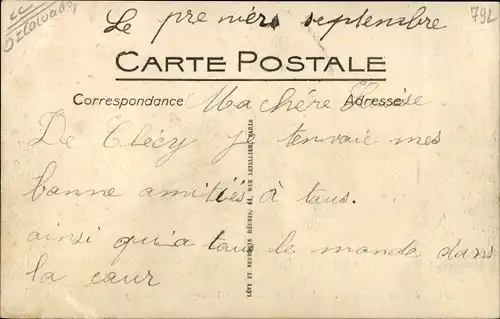 Le premiérs septembre
79L
CARTE POSTALE
Correspondance
Adresse
Ma chére
De Clécy je tenvoie mes
bonne amitiés à tous.
ainsi qu'a tous le monde dans
la cour
LÉVY ET NEURDEIN RÉUNIS, 44, RUE LETELLIER, PARIS